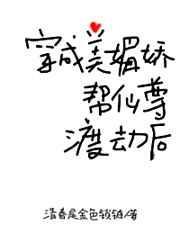 穿成美媚娇
帮仙尊
渡劫后
清香是金色铃铛/著